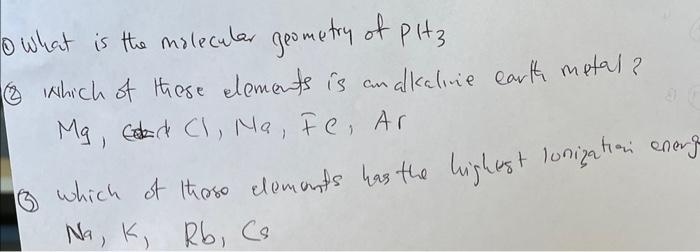 ① What is the molecular geometry of PH3
② Which of these elements is an alkaline earth metal?
Mg, Cl, Na, Fe, Ar
③ which of these elements has the highest Ionization energ
Na, K, Rb, Cs